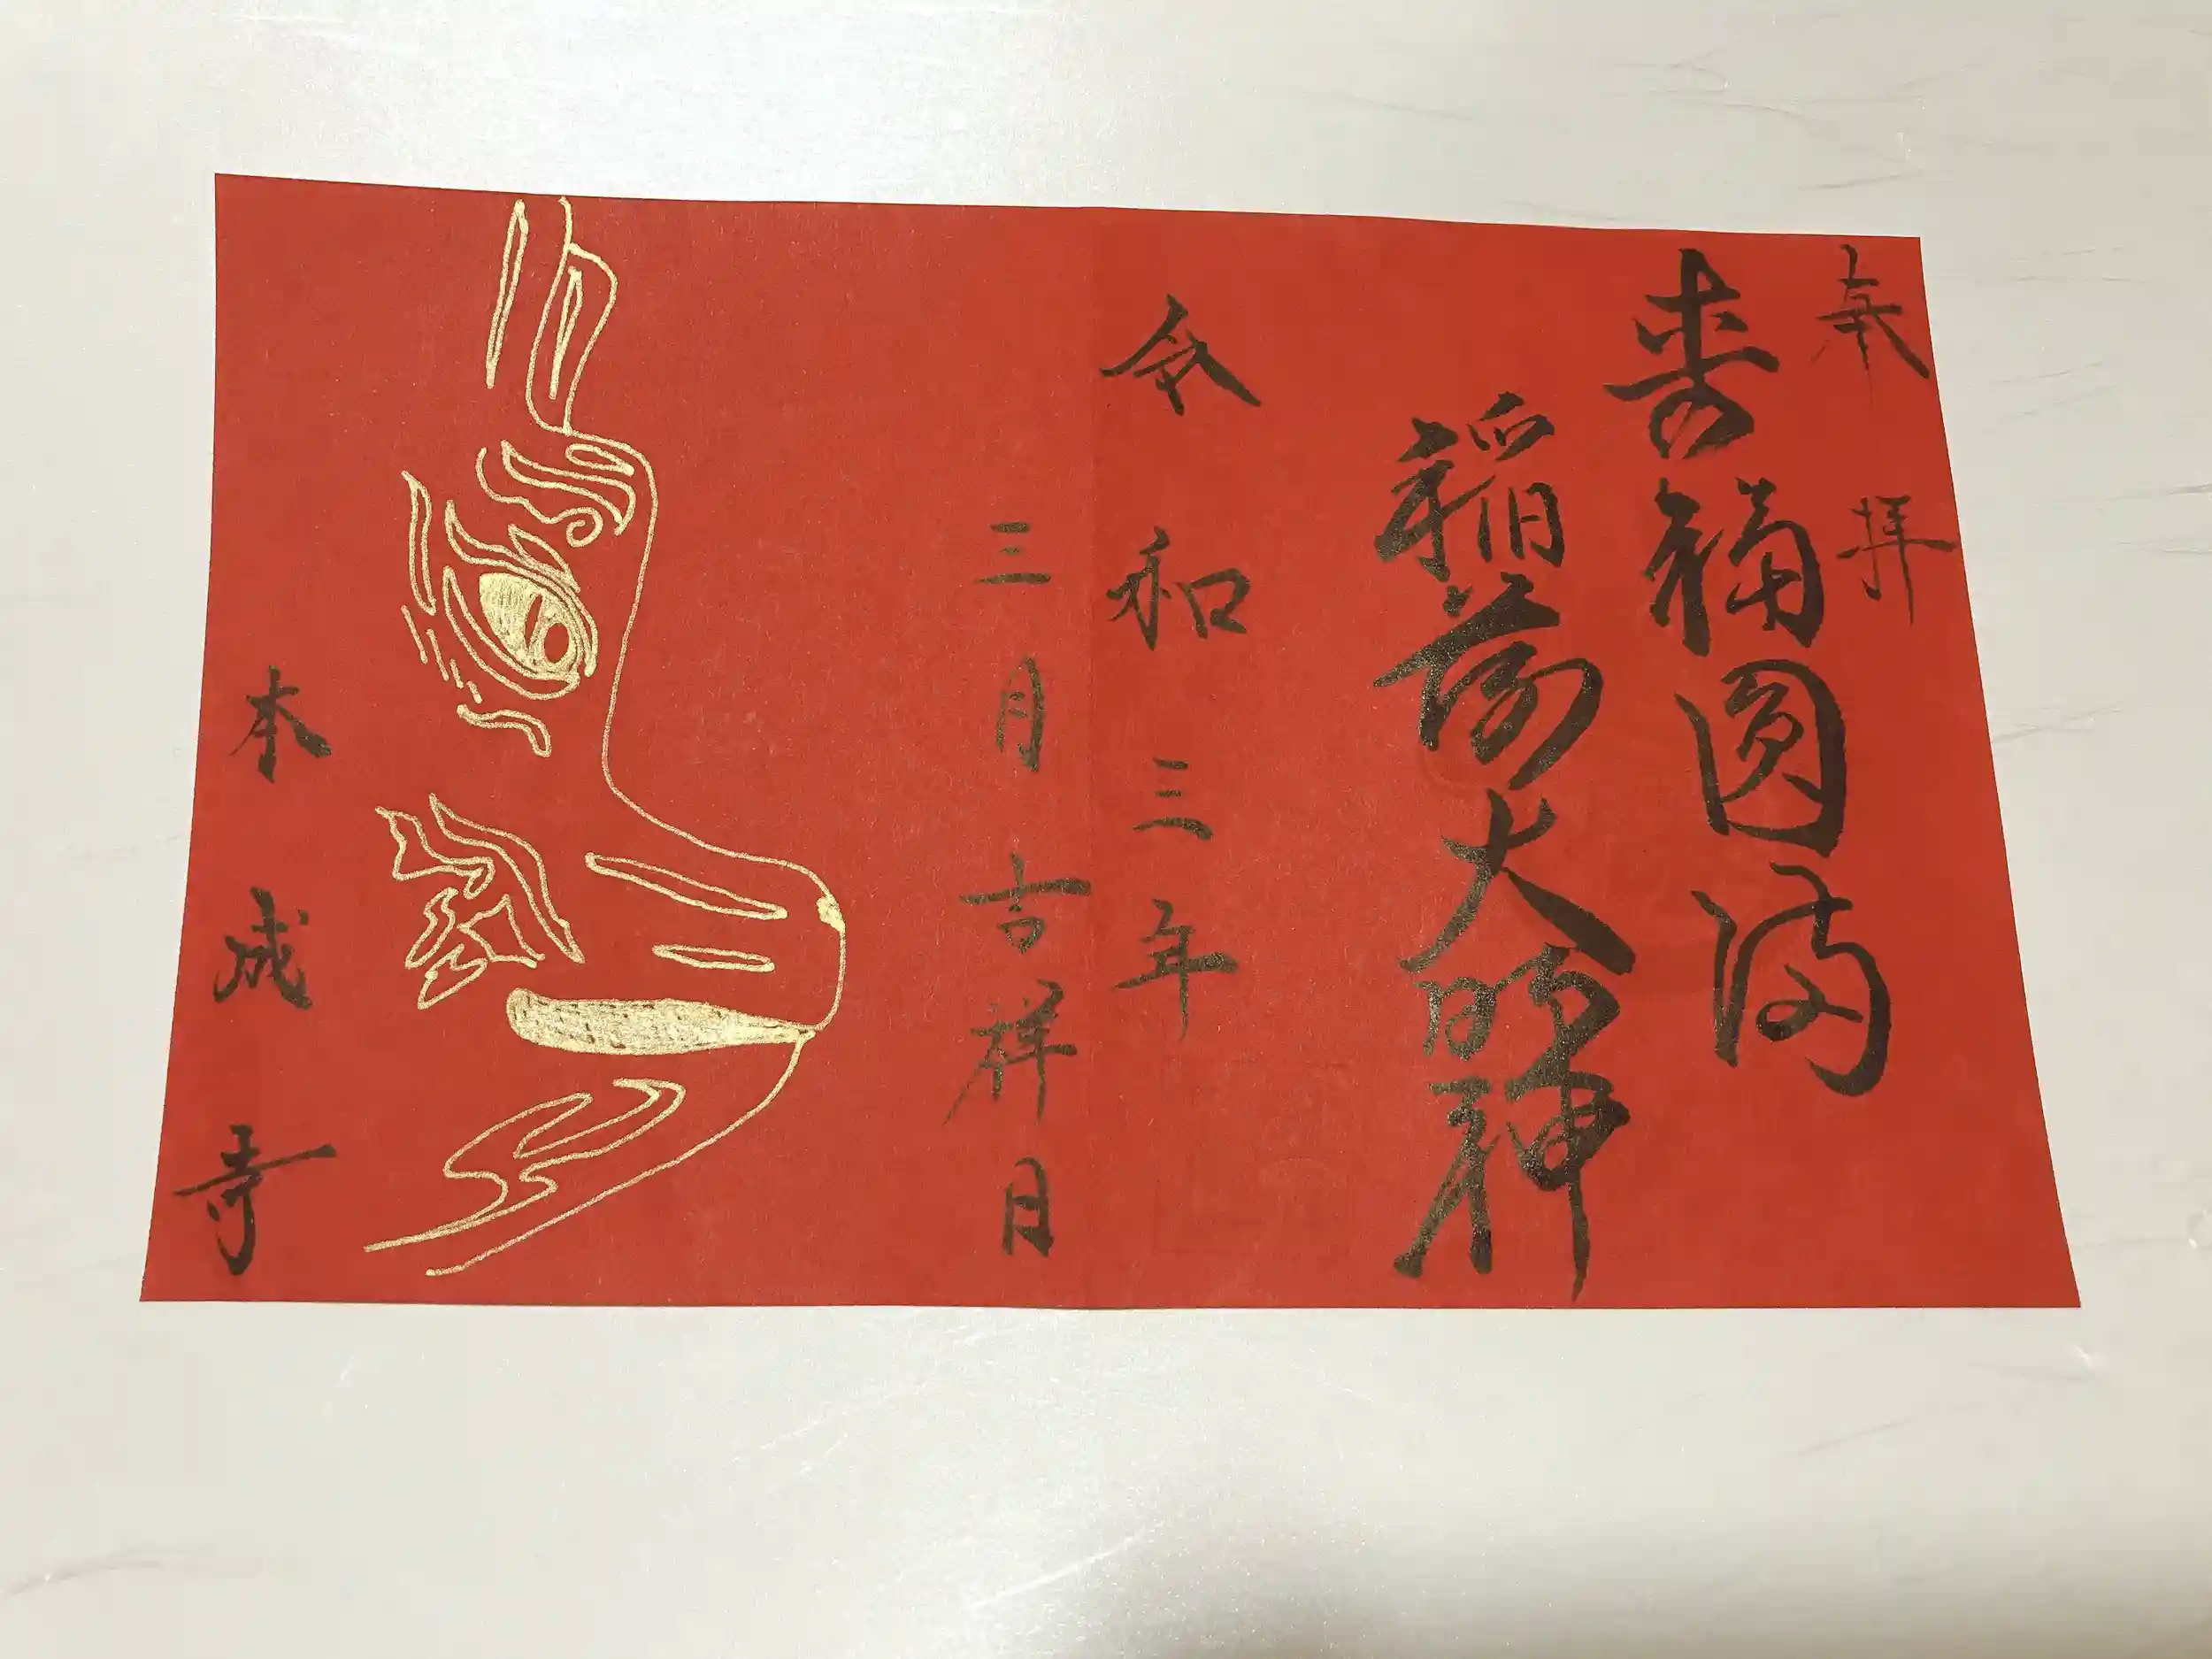 奉拝
寿福圓満
稲荷大明神
令和三年
三月吉祥日
本成寺